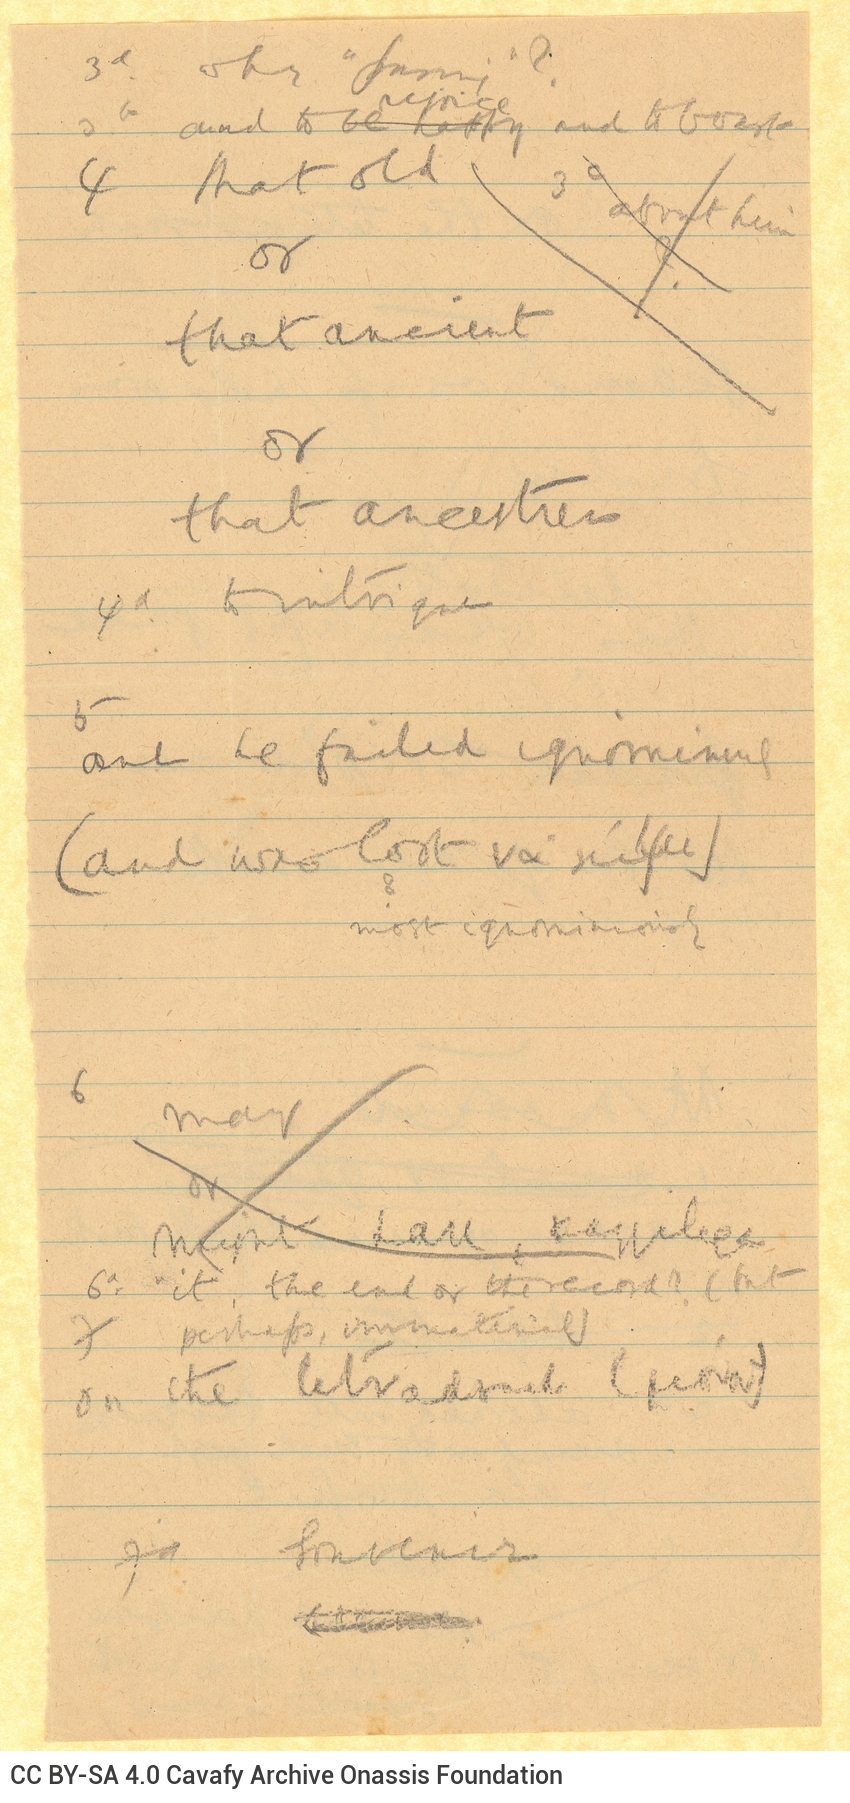 3a why "funny"?
3b and to be happy rejoice and to boast
4 that old
3c about him ?
or
that ancient
or
that ancestress
4a to intrigue
5
and he failed ignominiously
(and was lost
most ignominiously
6
may
or
might have,
6a "it", the end or the record? (but
perhaps, immaterial)
7
on the tetradrachm
7a Souvenir
CC BY-SA 4.0 Cavafy Archive Onassis Foundation